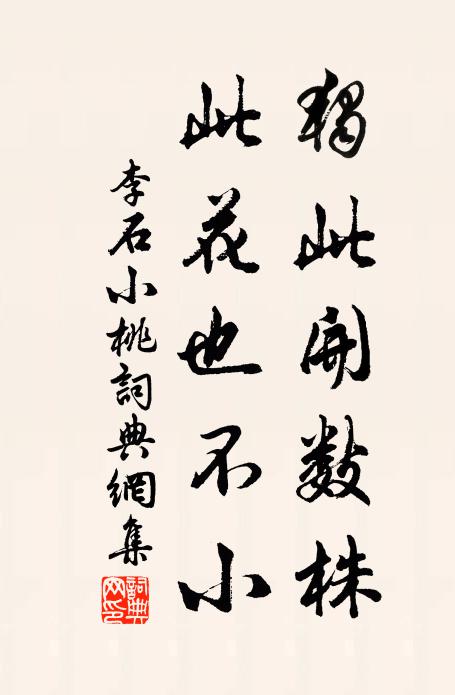 獨此開數株
此花也不小
李石小桃詞典網集
詞典网印